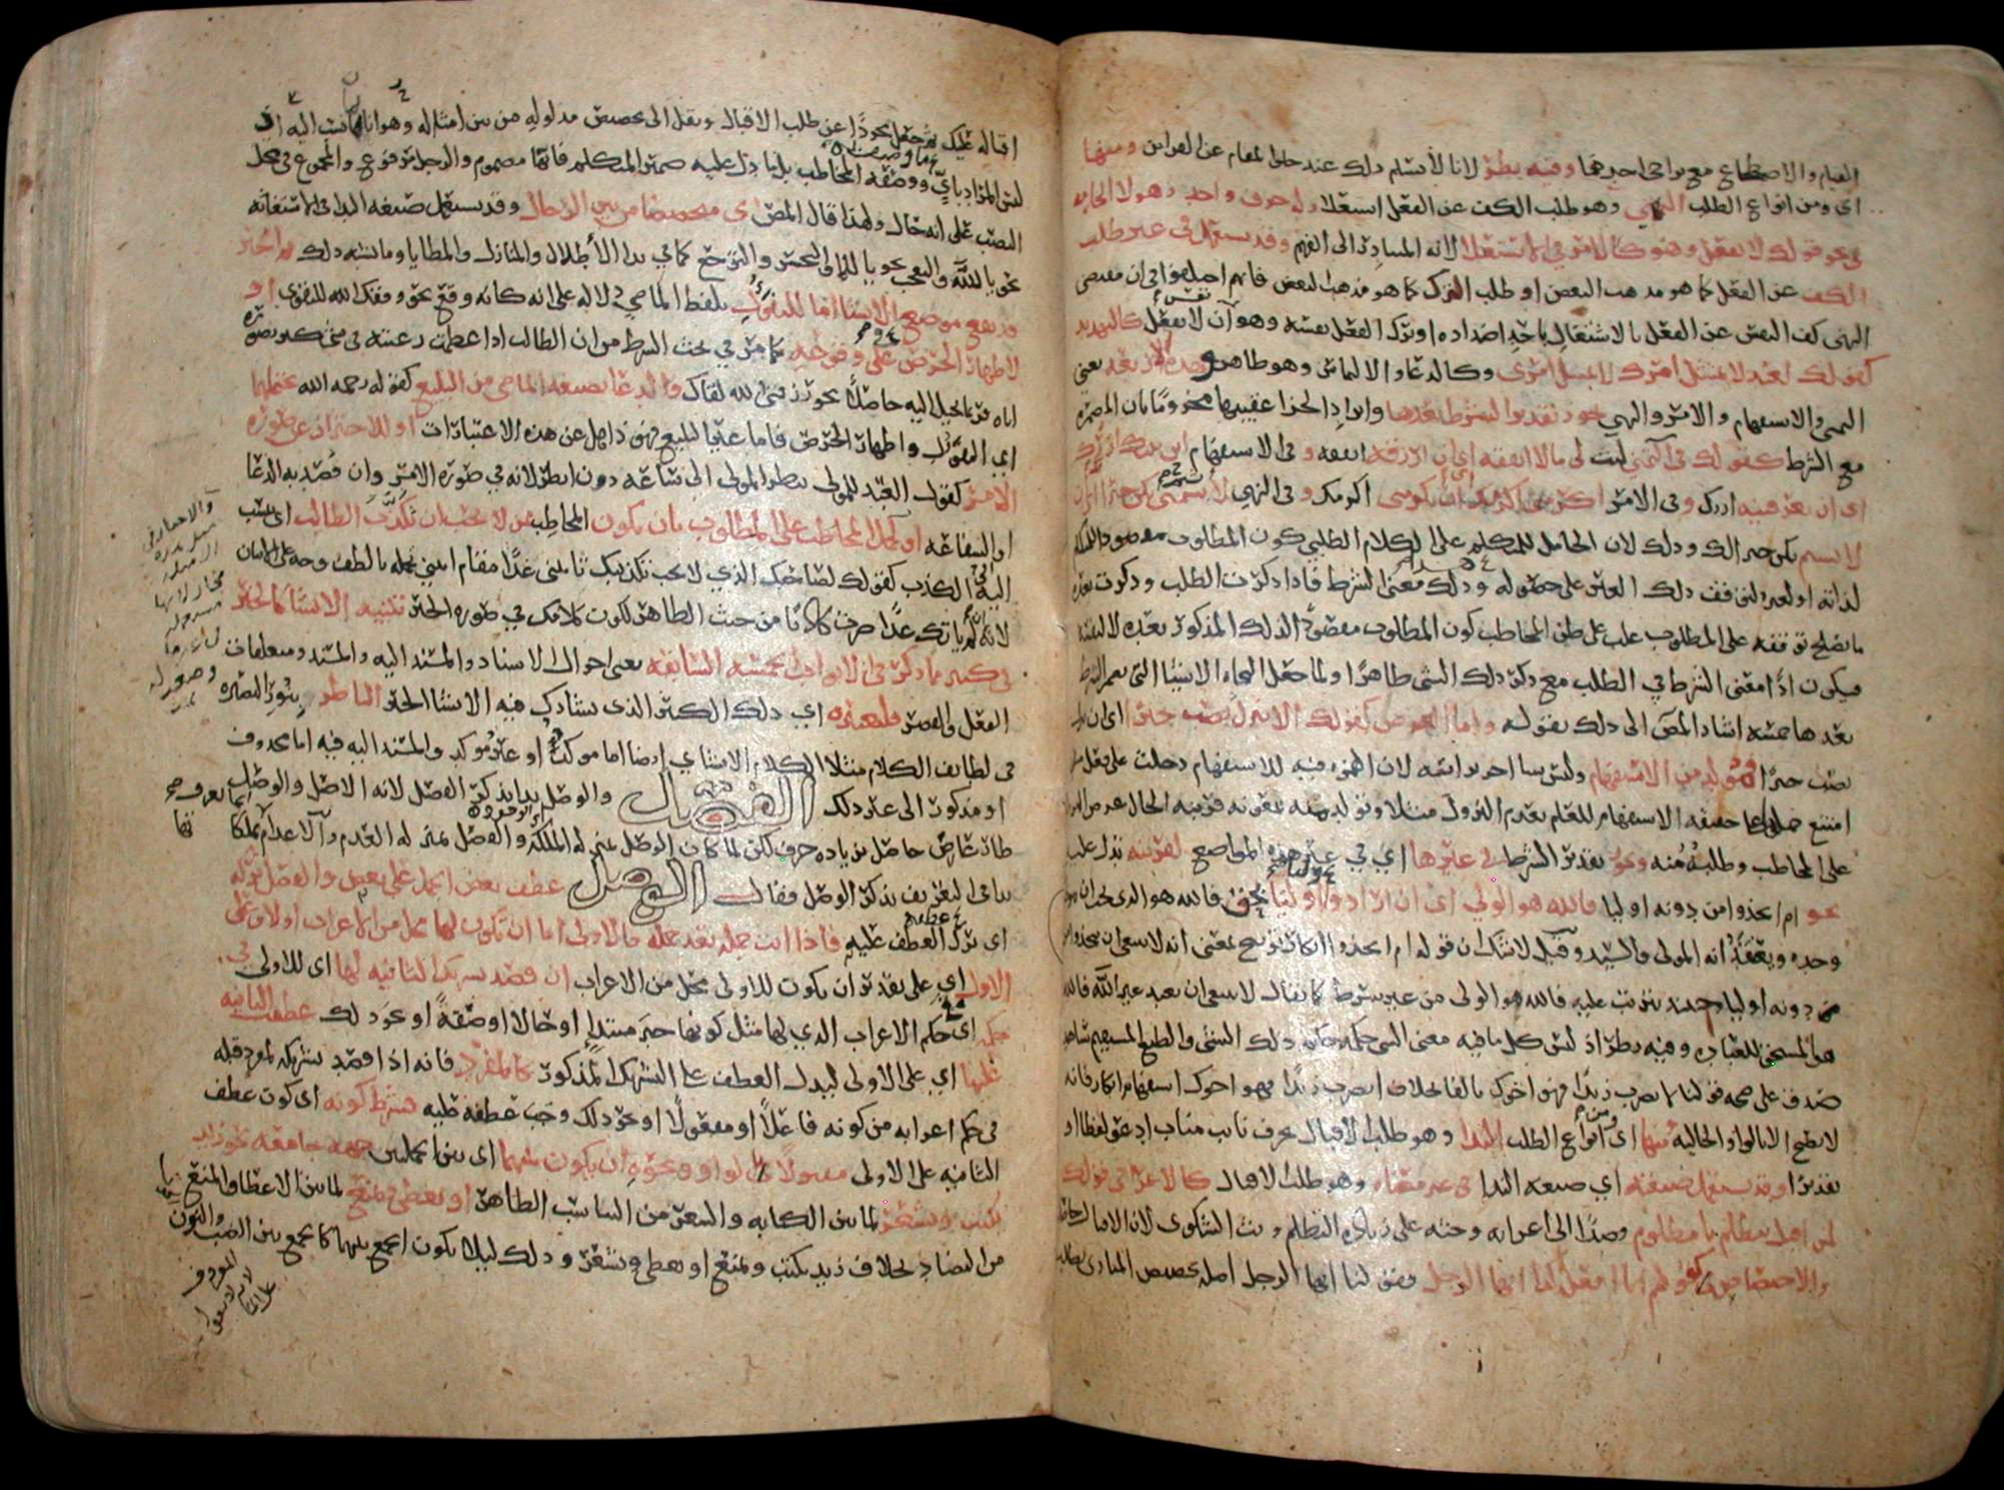 القيام والاضطجاع مع تراخي احدهما وفيه نظر لانا لا نسلم ذلك عند خلو المقام عن القراين ومنها
اى ومن انواع الطلب النهي وهو طلب الكف عن الفعل استعلا وله حرف واحد وهو لا الجازمه
فى نحو قولك لا تفعل وهو كالامر في الاستعلا لانه المتبادر الى الفهم وقد يستعمل في غير طلب
الكف عن الفعل كما هو مذهب البعض او طلب الترك كما هو مذهب البعض فانهم اختلفوا في ان مقتضى
النهى كف النفس عن الفعل بالاشتغال باحد اضداده او ترك الفعل نفسه وهو ان لا تفعل كالتهديد
كقولك لعبد لا يمتثل امرك لا تمتثل امرى وكالدعاء والالتماس وهو ظاهر وهذه الاربعة يعنى
التمنى والاستفهام والامر والنهي يجوز تقدير الشرط بعدها وايراد الجزا عقيبها مجزوما بان المضمره
مع الشرط كقولك في التمنى ليت لى مالا انفقه اى ان ارزقه انفقه وفى الاستفهام اين بيتك ازرك
اى ان تعرفنيه ازرك وفى الامر اكرمنى اكرمك اى ان تكرمني اكرمك وفى النهي لا تشتمنى يكن خيرا لك اى ان
لا تشتم يكن خيرا لك وذلك لان الحامل للمتكلم على الكلام الطلبي كون المطلوب مقصودا للمتكلم
لذاته او لغيره لتوقف ذلك الغير على حصوله وذلك معنى الشرط فاذا ذكرت الطلب وذكرت بعده
ما يصلح توقفه على المطلوب غلب على ظن المخاطب كون المطلوب مقصودا لذلك المذكور بعده لا لنفسه
فيكون اذا معنى الشرط في الطلب مع ذكر ذلك الشى ظاهرا ولما جعل النحاه الاشيا التى يضمر الشرط
بعدها خمسه اشار المص الى ذلك بقوله واما العرض كقولك الا تنزل تصب خيرا اى ان تنزل
تصب خيرا فمولد من الاستفهام وليس شيا اخر براسه لان الهمزه فيه للاستفهام دخلت على فعل منفي
امتنع حملها على حقيقه الاستفهام للعلم بعدم النزول مثلا وتولد منه بمعونه قرينه الحال عرض النزول
على المخاطب وطلبه منه ويجوز تقدير الشرط في غيرها اي في غير هذه المواضع لقرينه تدل عليه
نحو ام اتخذوا من دونه اوليا فالله هو الولي اى ان ارادوا اوليا بحق فالله هو الذى يجب ان يتولى
وحده ويعتقد انه المولى والسيد وقيل لا شك ان قوله ام اتخذوا انكار توبيخ بمعنى انه لا ينبغى ان يتخذوا
من دونه اوليا وحينئذ يترتب عليه فالله هو الولى من غير شرط كما يقال لا ينبغى ان يعبد غير الله فالله
هو المستحق للعباده وفيه نظر اذ ليس كل ما فيه معنى الشى حكمه حكم ذلك الشئى والطبع المستقيم شاهد
صدق على صحه قولنا لا تضرب زيدا فهو اخوك بالفا بخلاف اتضرب زيدا فهو اخوك استفهام انكار فانه
لا يصح الا بالواو الحاليه ومنها اى ومن انواع الطلب الندا وهو طلب الاقبال بحرف نايب مناب ادعو لفظا او
تقديرا وقد يستعمل صيغته اي صيغه الندا فى غير معناه وهو طلب الاقبال كالاغرا فى قولك
لمن اقبل يتظلم يا مظلوم قصدا الى اغرايه وحثه على زياده التظلم وبث الشكوى لان الاقبال حاصل
والاختصاص كقولهم انا افعل كذا ايها الرجل فقولنا ايها الرجل اصله تخصيص المنادى بطلب
اقباله عليك ثم جعل مجردا عن طلب الاقبال ونقل الى تخصيص مدلوله من بين امثاله وهو اما
ليس المراد باي ووصفه المخاطب بل ما دل عليه ضمير المتكلم فايها مضموم والرجل مرفوع والمجموع في محل
النصب على انه حال ولهذا قال المص اى متخصصا من بين الرجال وقد يستعمل صيغه الندا فى الاستغاثه
نحو يا لله والتعجب نحو يا للما والتحسر والتوجع كما في ندا الاطلال والمنازل والمطايا وما اشبه ذلك ثم الخبر
قد يقع موقع الانشا اما للتفاول بلفظ الماضي دلاله على انه كانه وقع نحو وفقك الله للتقوى او
لاظهار الحرص على وقوعه كما مر في بحث الشرط من ان الطالب اذا عظمت رغبته فى شى كثر تصوره
اياه فربما يخيل اليه حاصلا نحو رزقنى الله لقاك والدعا بصيغه الماضى من البليغ كقوله رحمه الله يحتملهما
اي التفاول واظهار الحرص واما غير البليغ فهو ذاهل عن هذه الاعتبارات او للاحتراز عن صوره
الامر كقول العبد للمولى ينظر المولى الى ساعه دون انظر لانه في صوره الامر وان قصد به الدعا
او الشفاعه او لحمل المخاطب على المطلوب بان يكون المخاطب ممن لا يحب ان يكذب الطالب اى ينسب
اليه الكذب كقولك لصاحبك الذي لا يحب تكذيبك تاتينى غدا مقام ايتنى تحمله بالطف وجه على الاتيان
لانه ان لم ياتك غدا صرت كاذبا من حيث الظاهر لكون كلامك في صوره الخبر تنبيه الانشا كالخبر
فى كثير مما ذكر فى الابواب الخمسه السابقه يعنى احوال الاسناد والمسند اليه والمسند ومتعلقات
الفعل والقصر فليعتبره اي ذلك الكثير الذى يشارك فيه الانشا الخبر الناظر بنور البصيره
فى لطايف الكلام مثلا الكلام الانشاي ايضا اما موكد او غير موكد والمسند اليه فيه اما محذوف
او مذكور الى غير ذلك الفصل والوصل بدا بذكر الفصل لانه الاصل والوصل
طار عارض حاصل بزياده حرف لكن لما كان الوصل بمنزله الملكه والفصل بمنزله العدم والاعدام انما تعرف بملكاتها
بدا في التعريف بذكر الوصل فقال الوصل عطف بعض الجمل على بعض والفصل تركه
اى ترك العطف عليه فاذا اتت جمله بعد جمله فالاولى اما ان تكون لها محل من الاعراب اولا وعلى
الاول اي على تقدير ان يكون للاولى محل من الاعراب ان قصد تشريك الثانيه لها اى للاولى في
حكمه اى حكم الاعراب الذي لها مثل كونها خبر مبتدا او حالا او صفة او نحو ذلك عطفت الثانيه
عليها اي على الاولى ليدل العطف على التشريك المذكور كالمفرد فانه اذا قصد تشريكه لمفرد قبله
فى حكم اعرابه من كونه فاعلا او مفعولا او نحو ذلك وجب عطفه عليه فشرط كونه اى كون عطف
الثانيه على الاولى مقبولا بالواو ونحوه ان يكون بينهما اى بين الجملتين جهه جامعه نحو زيد
يكتب ويشعر لما بين الكتابه والشعر من التناسب الظاهر او يعطى ويمنع لما بين الاعطا والمنع
من التضاد بخلاف زيد يكتب ويمنع او يعطى ويشعر وذلك ليلا يكون الجمع بينهما كالجمع بين الضب والنون